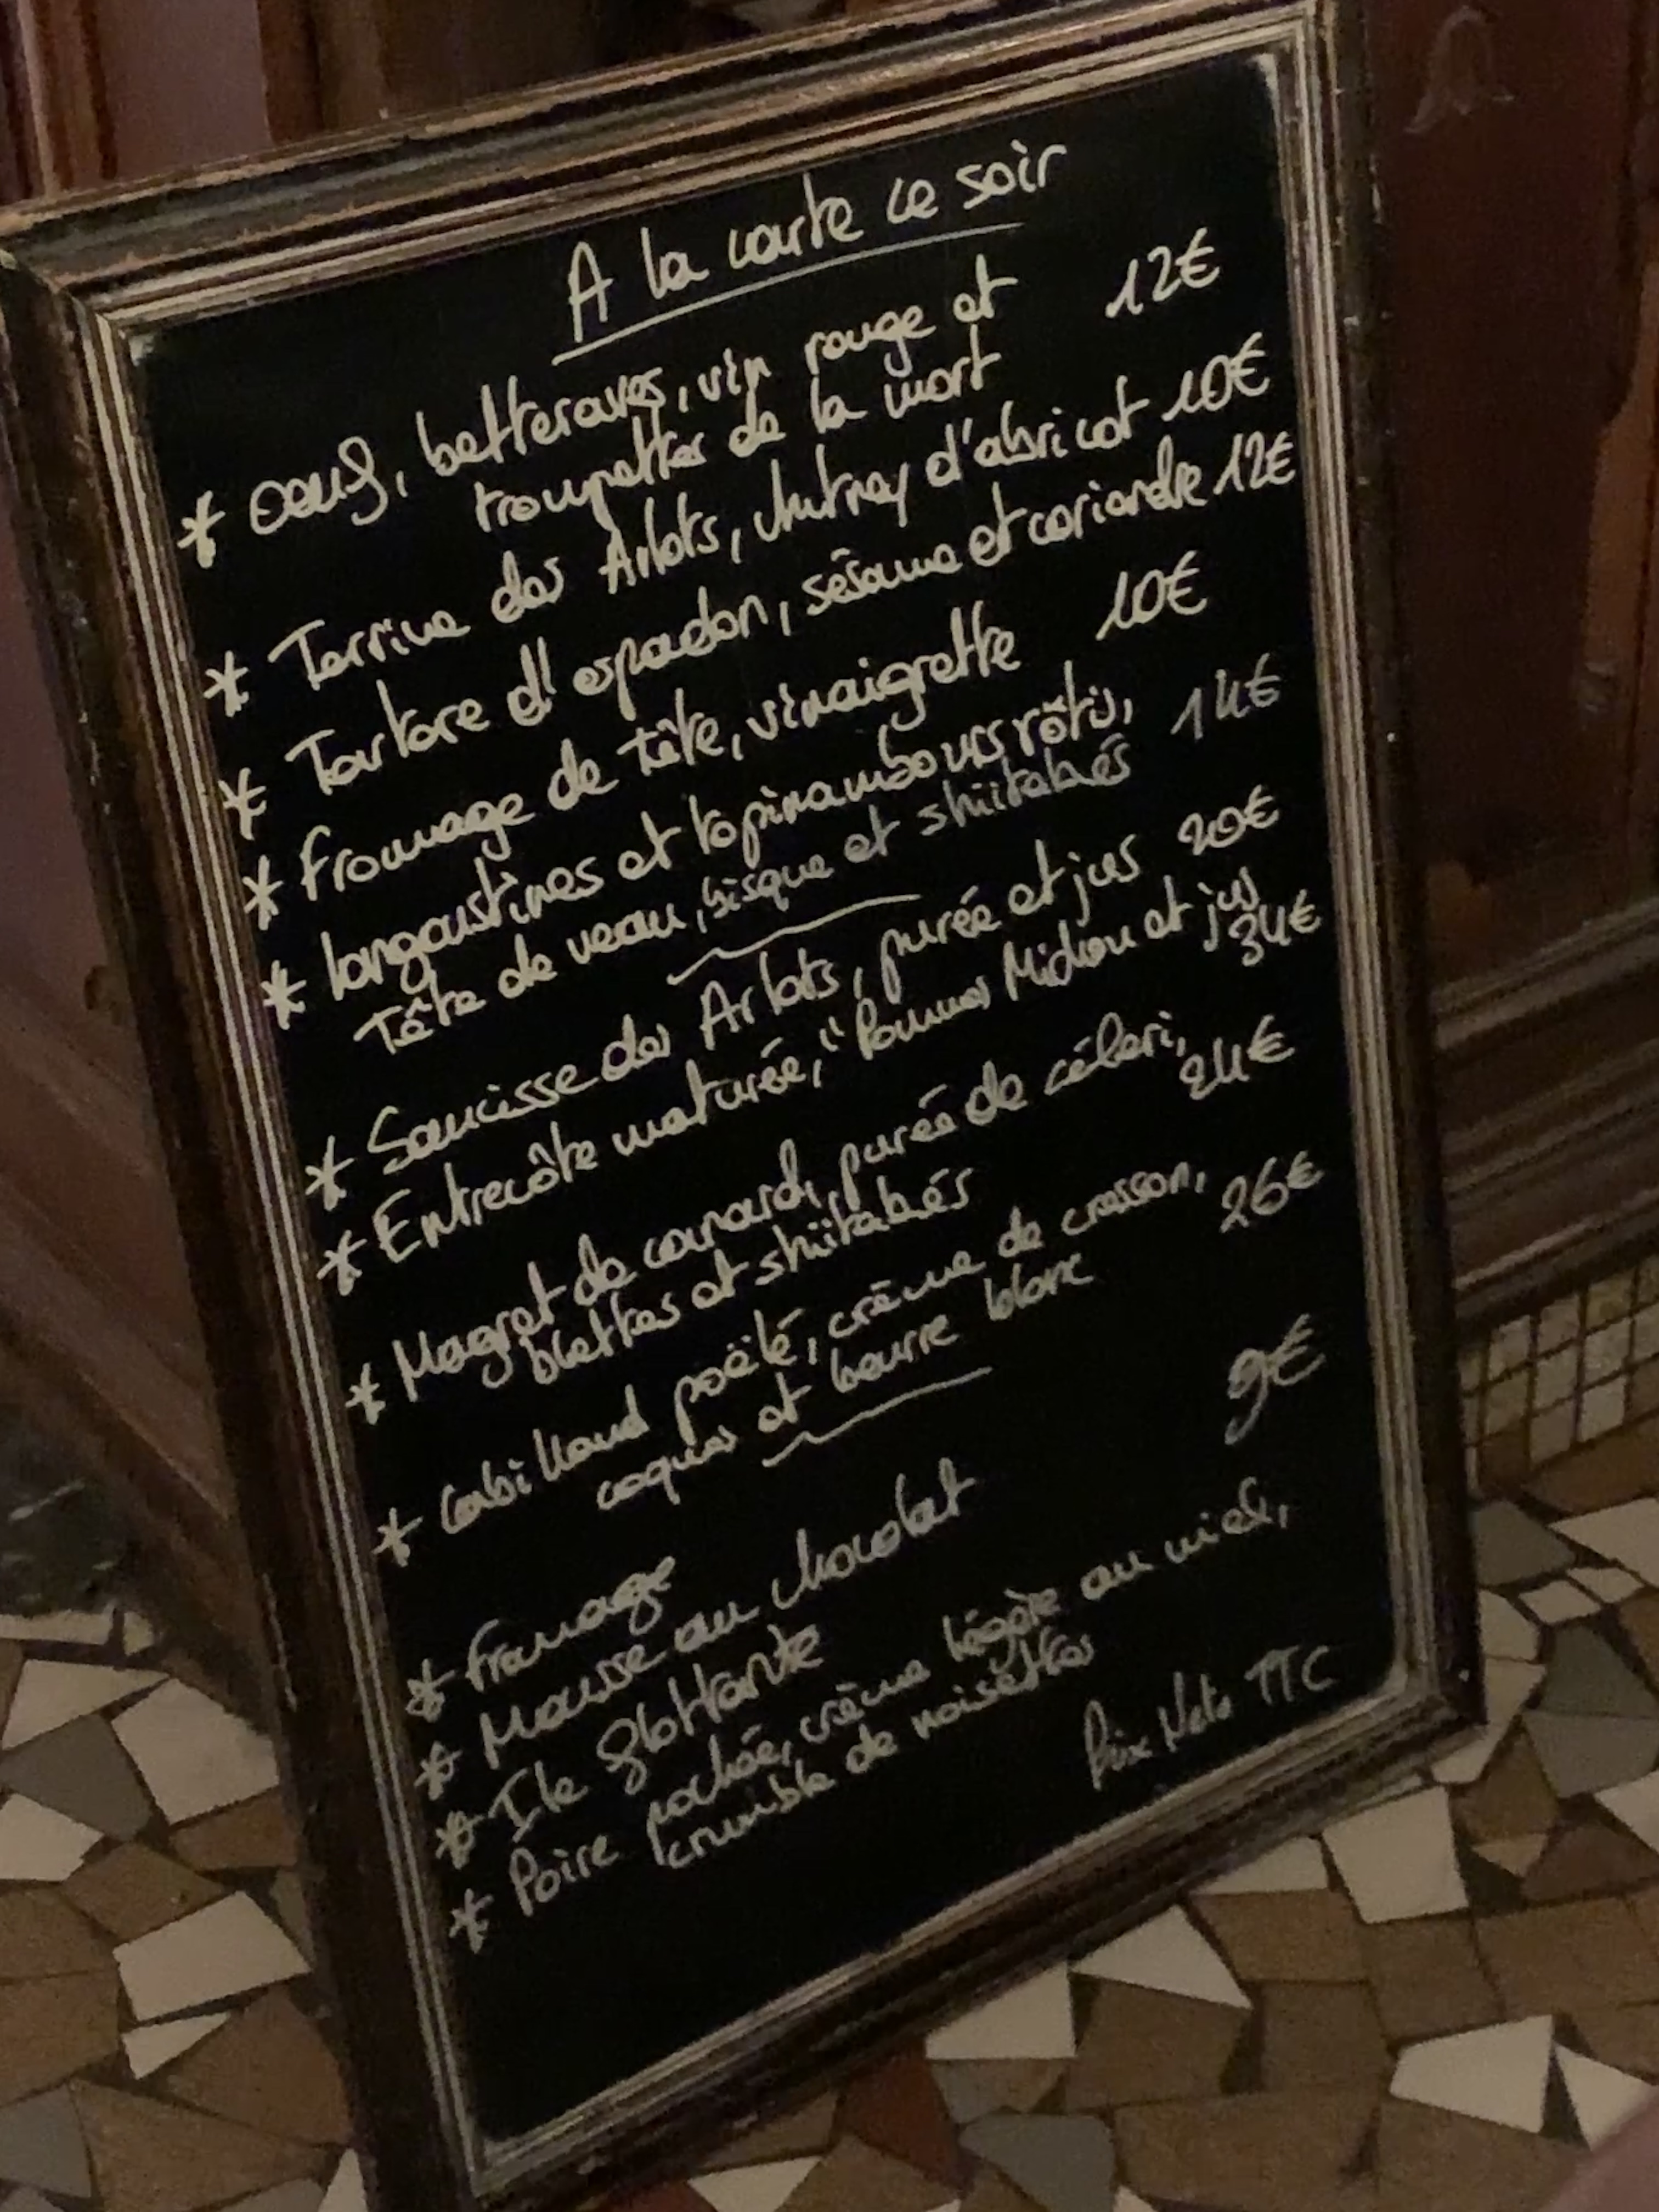 A la carte ce soir
* Oeuf, betteraves, vin rouge et 12€
trompettes de la mort
* Terrine des Arlots, chutney d'abricot 10€
* Tartare d'espadon, sésame et coriandre 12€
* Fromage de tête, vinaigrette 10€
* langoustines et topinambours rôtis, 14€
Tête de veau, bisque et shiitakés
* Saucisse des Arlots, purée et jus 20€
* Entrecôte maturée, "Pommes Midrou et jus
34€
* Magret de canard, purée de céleri, 24€
blettes et shiitakés
* Cabillaud poëlé, crème de cresson, 26€
coques et beurre blanc
9€
* Fromage
* Mousse au chocolat
* Ile flottante
* Poire pochée, crème légère au miel,
crumble de noisettes
Prix Nets TTC